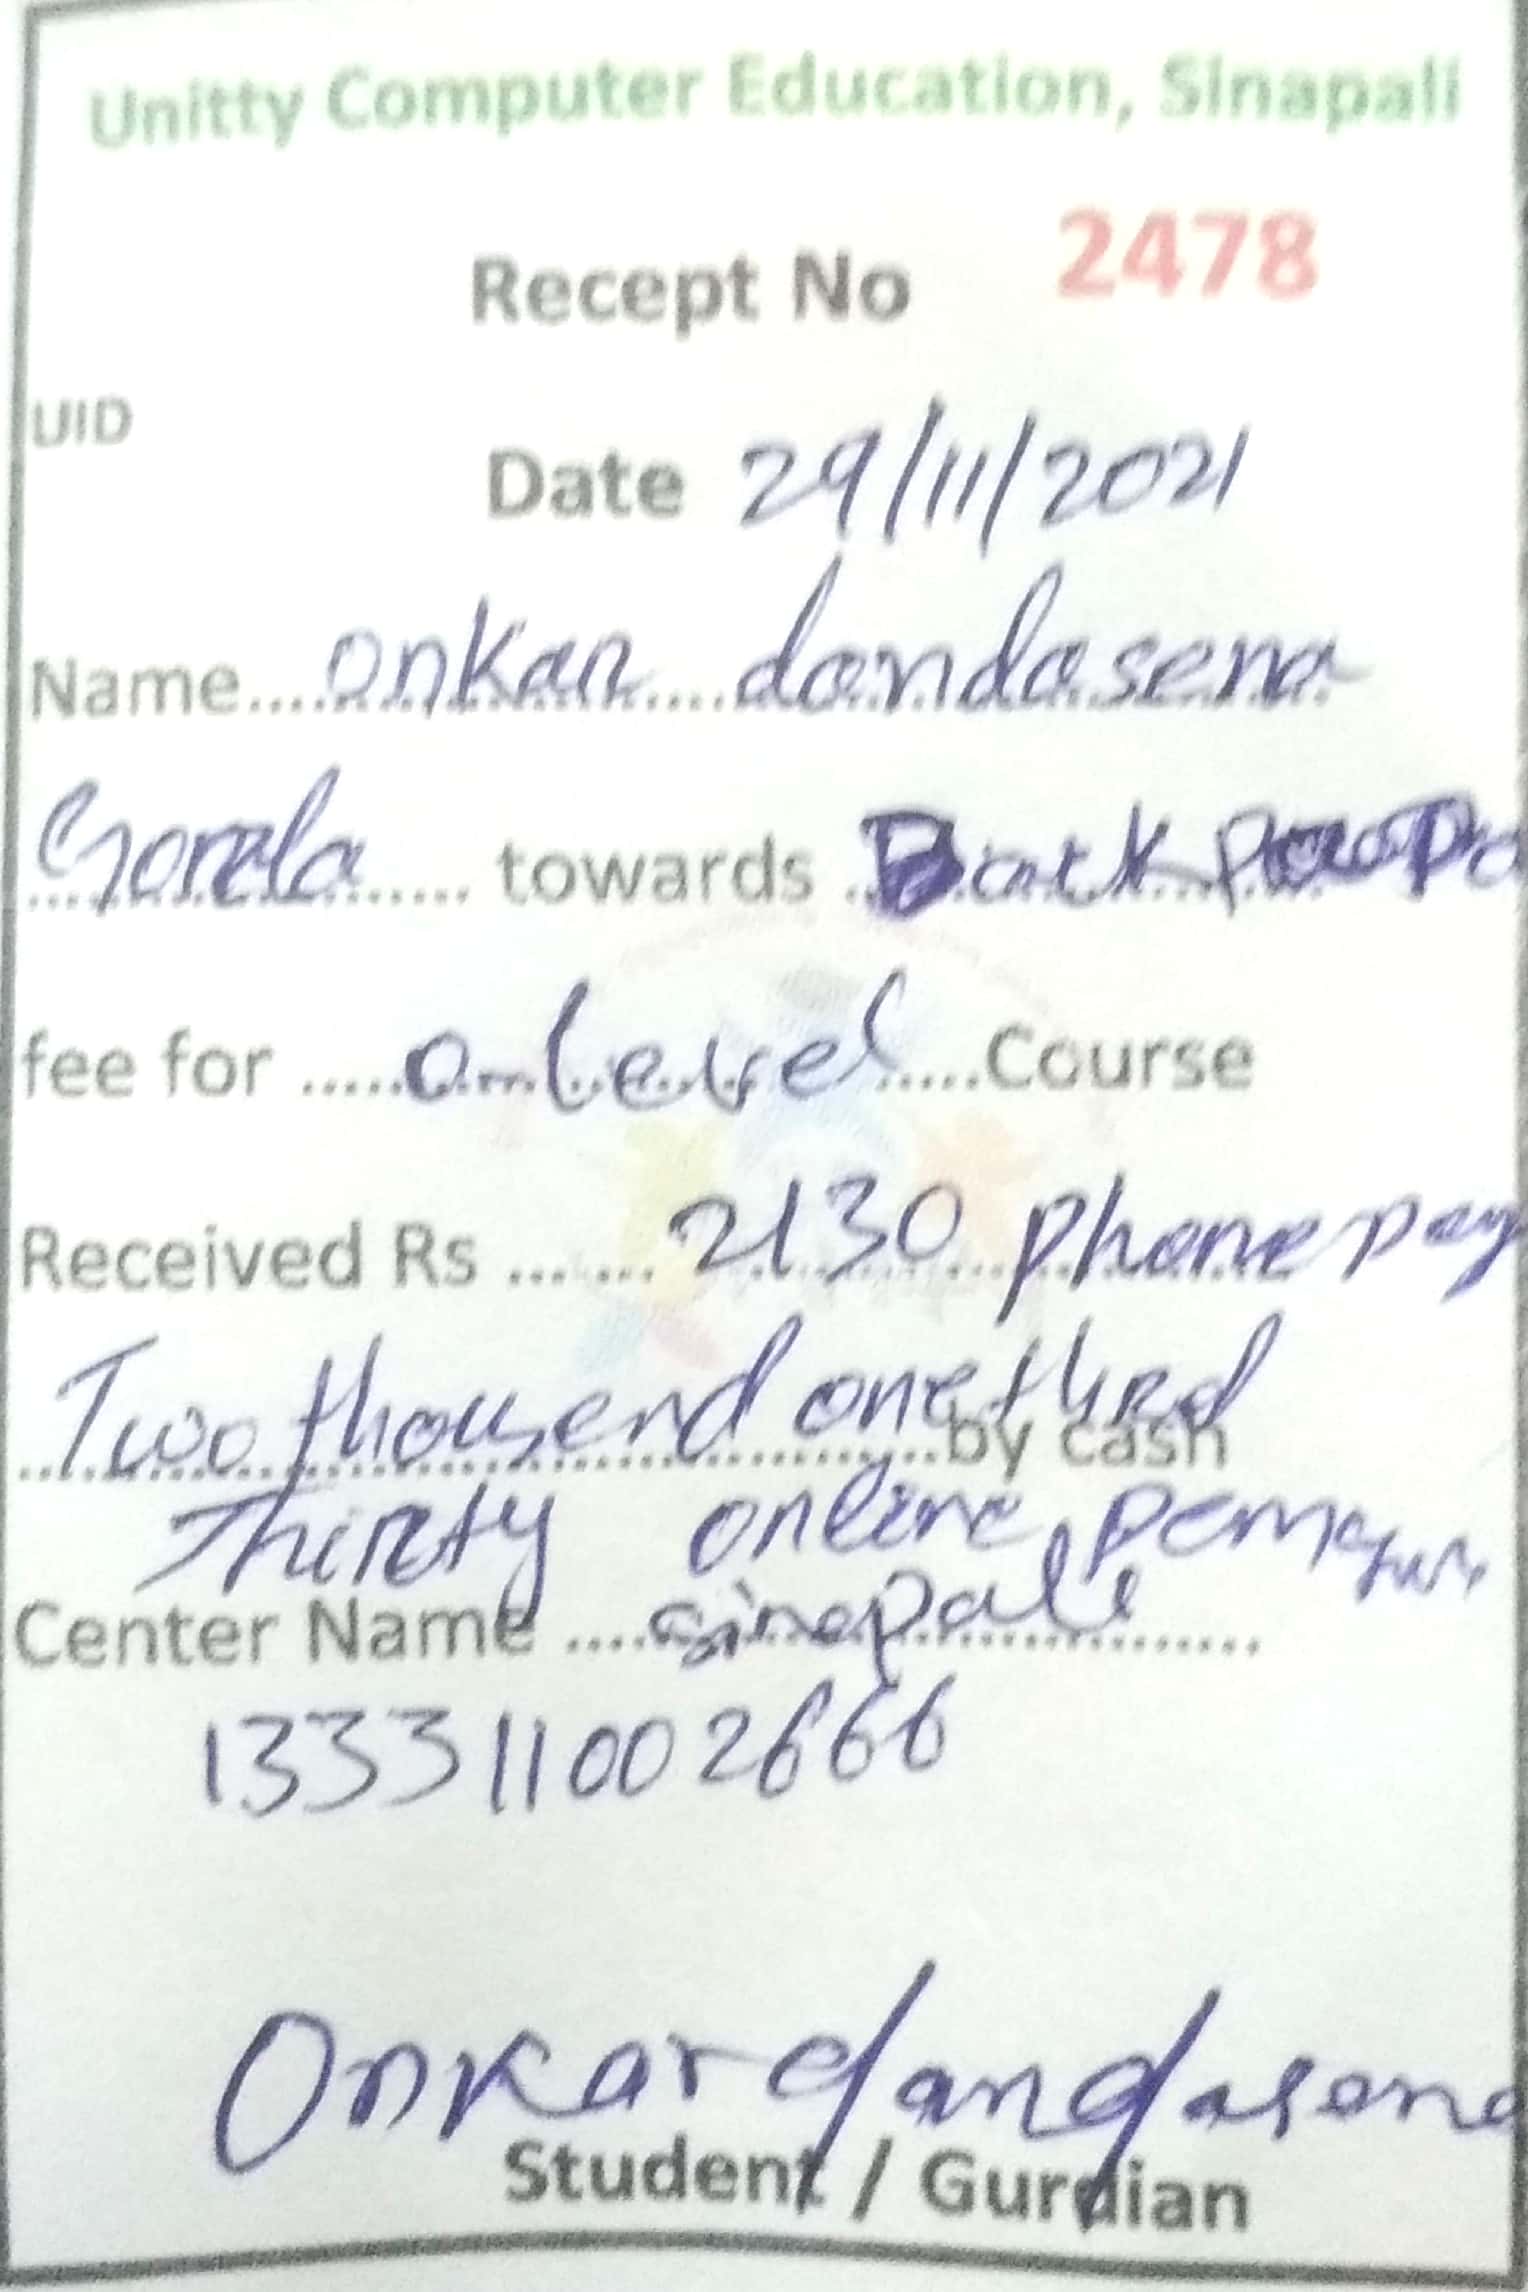 Unitty Computer Education, Sinapali
Recept No 2478
UID
Date 29/11/2021
Name....onkar....dandasena
...... towards ..Back
fee for .....o-level.....Course
Received Rs ....... 2130 phone pay
Two thousend one
by cash
Thirty online
Center Name ....sinepali..............
133311002666
Onkar dandasena
Student / Gurdian